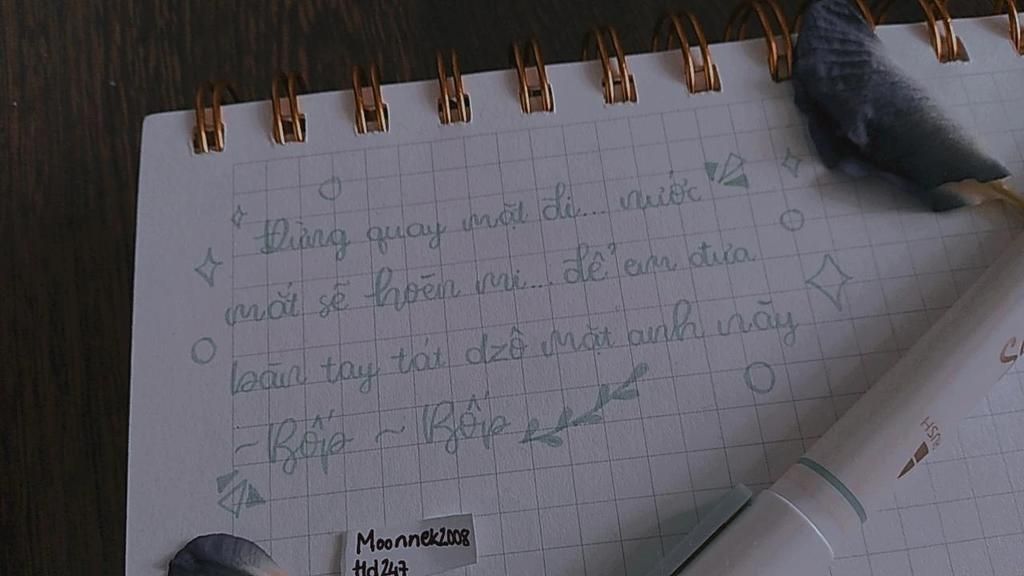 Đừng quay mặt đi... nước
mắt sẽ hoen mi... để em đưa
bàn tay tát dzô mặt anh nãy
~ Bốp ~ Bốp
Moonnek2008
Hd247